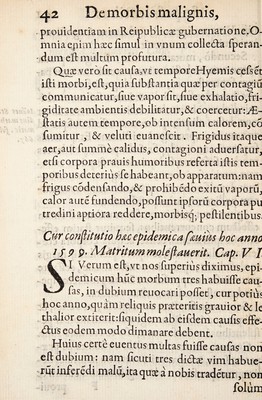 42 De morbis malignis,
prouidentiam in Reipublicæ gubernatione. O-
mnia enim hæc simul in vnum collecta speran-
dum est multum profutura.
Quæ verò sit causa, vt tempore Hyemis cesẽt
isti morbi, est, quia substantia quæ per contagiũ
communicatur, siue vapor sit, siue exhalatio, fri-
giditate ambientis debilitatur, & coercetur: Æ-
statis autem tempore, ob intensum calorem, cõ
sumitur, & veluti euanescit. Frigidus itaque
aer, aut summè calidus, contagioni aduersatur,
etsi corpora prauis humoribus referta istis tem-
poribus deterius se habeant, ob apparatum: nam
frigus cõdensando, & prohibẽdo exitũ vaporũ,
calor autẽ fundendo, possunt ipsorũ corpora pu
tredini aptiora reddere, morbisq; pestilentibus.
Cur constitutio hæc epidemica sæuius hoc anno
1599. Matritum molestauerit. Cap. VI
SI Verum est, vt nos superiùs diximus, epi-
demicum hũc morbum tres habuisse cau-
sas, in dubium reuocari posset, cur potiùs
hoc anno, quàm reliquis præteritis grauior & le
thalior extiterit: siquidem ab eisdem causis effe-
ctus eodem modo dimanare debent.
Huius certè euentus multas fuisse causas non
est dubium: nam sicuti tres dictæ vim habue-
rũt inferẽdi malũ, ita quæ à nobis tradẽtur, non
solùm